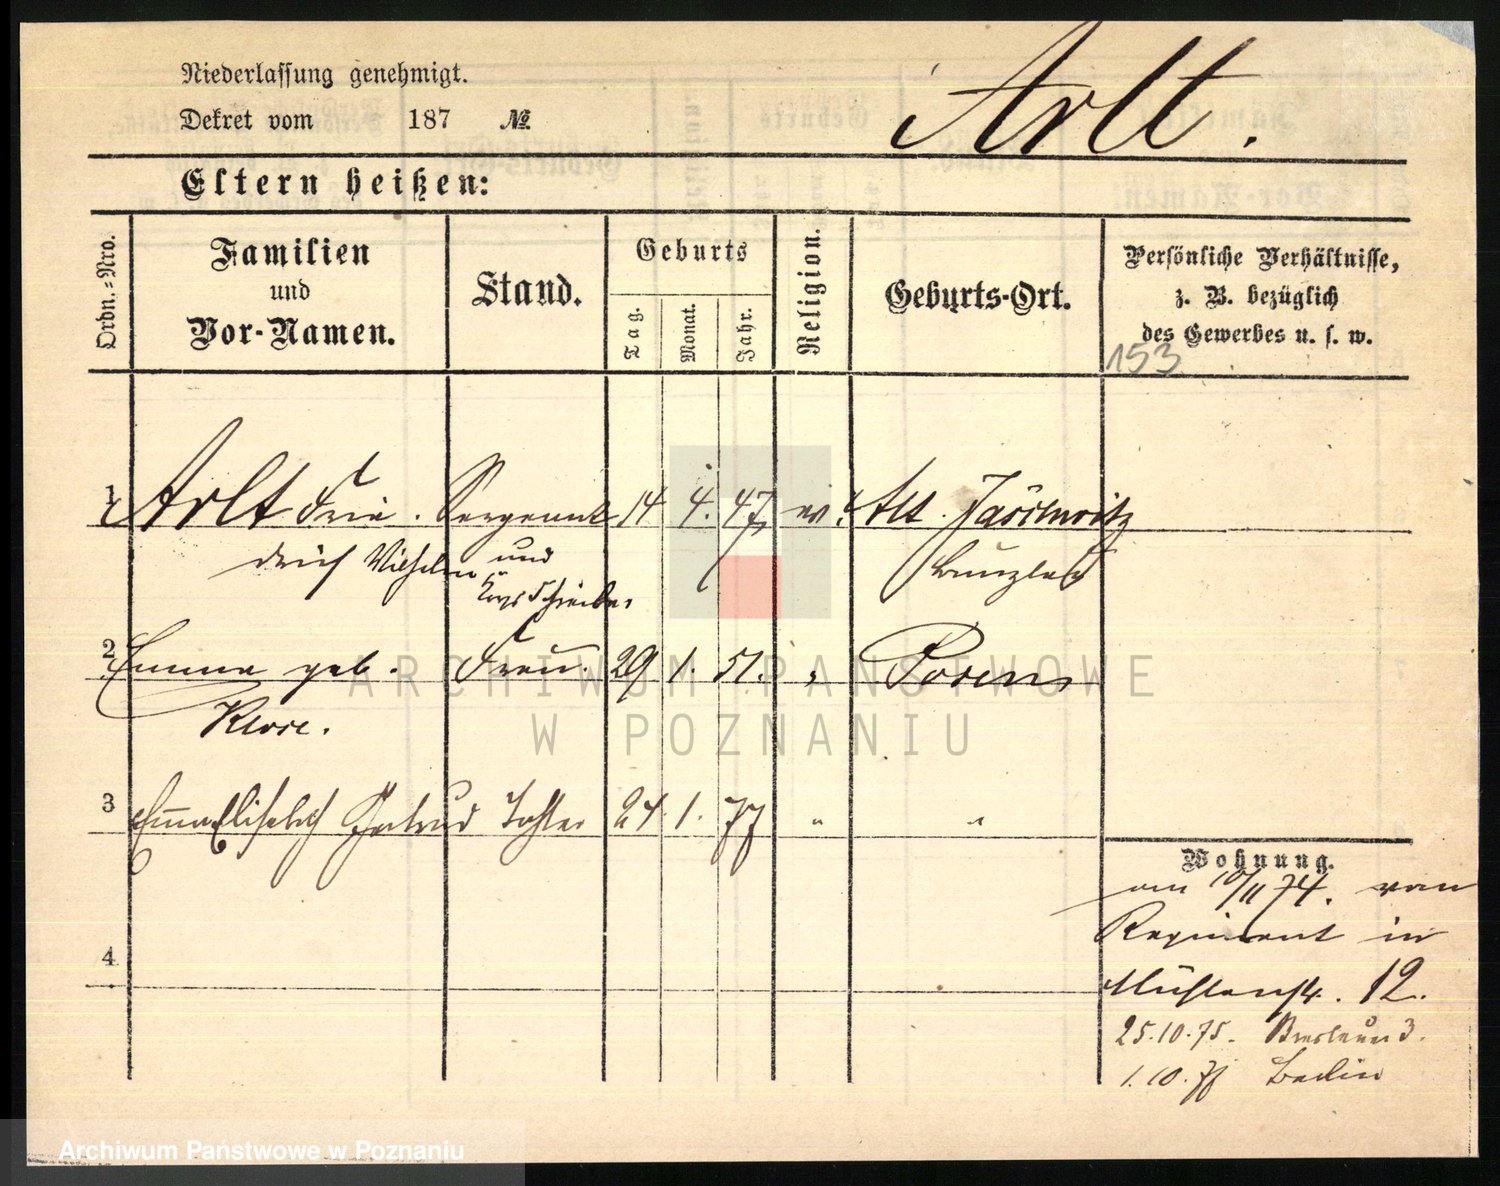 Niederlassung genehmigt.
Dekret vom 187 №
Arlt.
Eltern heißen:
Ordn.-Nro.
Familien
und
Vor-Namen.
Stand.
Geburts
Tag.
Monat.
Jahr.
Religion.
Geburts-Ort.
Persönliche Verhältnisse,
z. B. bezüglich
des Gewerbes u. s. w.
153
1 Arlt Frie- Sergeant 14 4. 47, ev. Alt Jäschwitz
drich Wilhelm und Bunzlau
Schreiber
2 Emma geb. Frau. 29 1. 51. " Posen
Klose.
3 Emma Elisabeth Gertrud Tochter 24. 1. 77 " "
4
Wohnung.
am 10/11 74. vom
Regiment in
Mühlenstr. 12.
25.10.75. Breslauer 3.
1.10.78 Berlin
ARCHIWUM PAŃSTWOWE
W POZNANIU
Archiwum Państwowe w Poznaniu